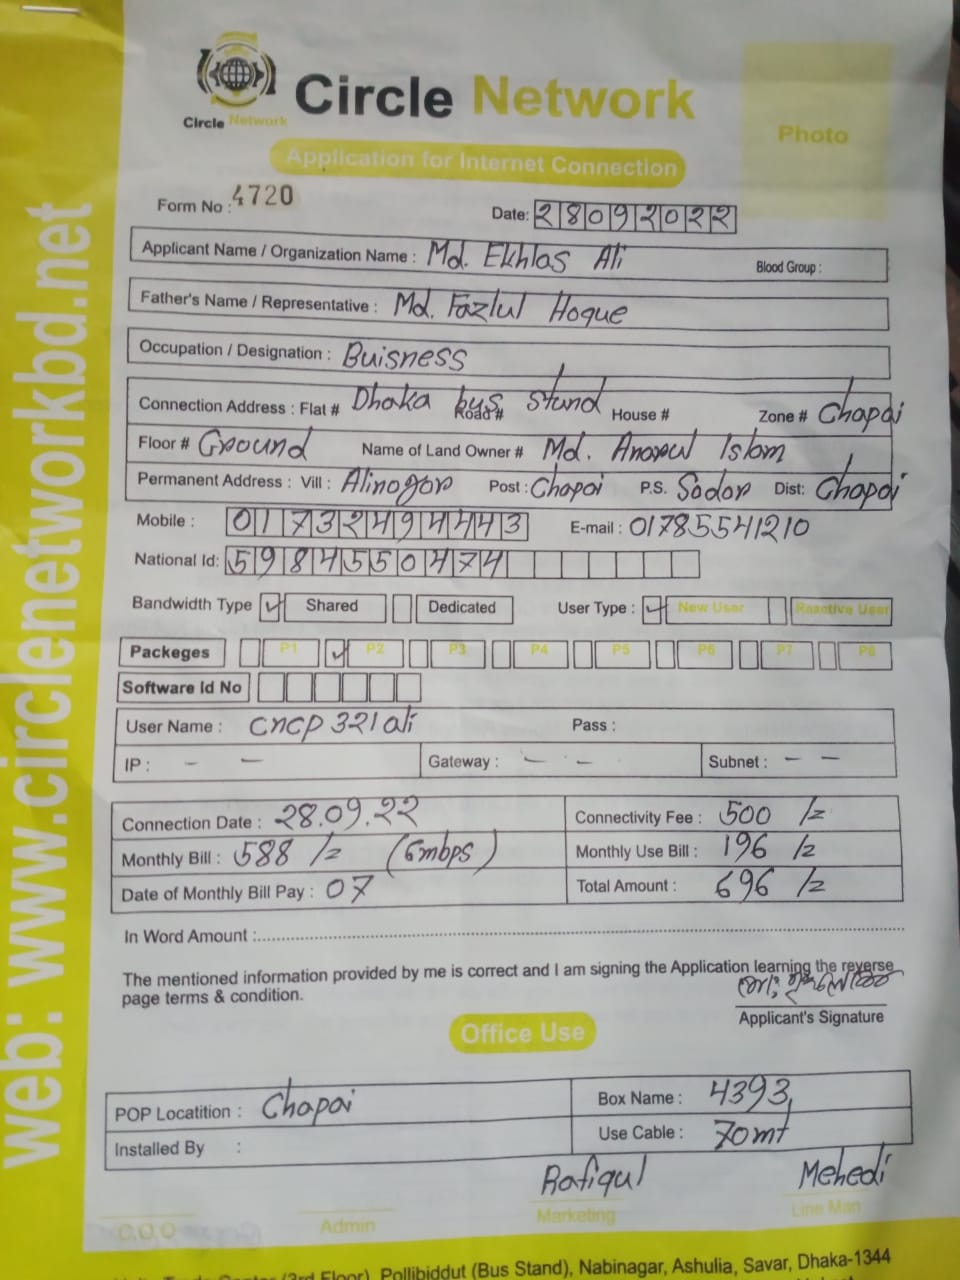 Circle Network
Circle Network
Photo
Application for Internet Connection
Form No : 4720
Date: 28092022
Applicant Name / Organization Name : Md. Ekhlas Ali Blood Group :
Father's Name / Representative : Md. Fazlul Hoque
Occupation / Designation : Buisness
Connection Address : Flat # Dhaka bus stand Road # House # Zone # Chapai
Floor # Ground Name of Land Owner # Md. Anarul Islam
Permanent Address : Vill : Alinogor Post : Chapai P.S. Sodor Dist: Chapai
Mobile : 01732494443 E-mail : 01785541210
National Id: 5984550474
Bandwidth Type ✓ Shared Dedicated User Type : ✓ New User Reactive User
Packeges P1 ✓ P2 P3 P4 P5 P6 P7 P8
Software Id No
User Name : cncp321ali Pass :
IP : - - Gateway : - - Subnet : - -
Connection Date : 28.09.22 Connectivity Fee : 500 /=
Monthly Bill : 588 /= (6mbps) Monthly Use Bill : 196 /=
Date of Monthly Bill Pay : 07 Total Amount : 696 /=
In Word Amount :
The mentioned information provided by me is correct and I am signing the Application learning the reverse
page terms & condition.
Applicant's Signature
Office Use
POP Locatition : Chapai Box Name : 4393
Installed By : Use Cable : 70mt
Rafiqul Mehedi
C.O.O Admin Marketing Line Man
(3rd Floor), Pollibiddut (Bus Stand), Nabinagar, Ashulia, Savar, Dhaka-1344
web: www.circlenetworkbd.net